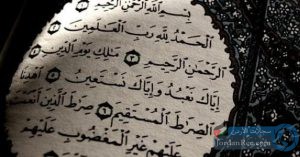 بِسْمِ اللَّهِ الرَّحْمَٰنِ الرَّحِيمِ
الْحَمْدُ لِلَّهِ رَبِّ الْعَالَمِينَ
الرَّحْمَٰنِ الرَّحِيمِ ٣ مَالِكِ يَوْمِ الدِّينِ
إِيَّاكَ نَعْبُدُ وَإِيَّاكَ نَسْتَعِينُ ٥ اهْدِنَا
الصِّرَاطَ الْمُسْتَقِيمَ ٦ صِرَاطَ الَّذِينَ أَنْعَمْتَ
عَلَيْهِمْ غَيْرِ الْمَغْضُوبِ عَلَيْهِمْ